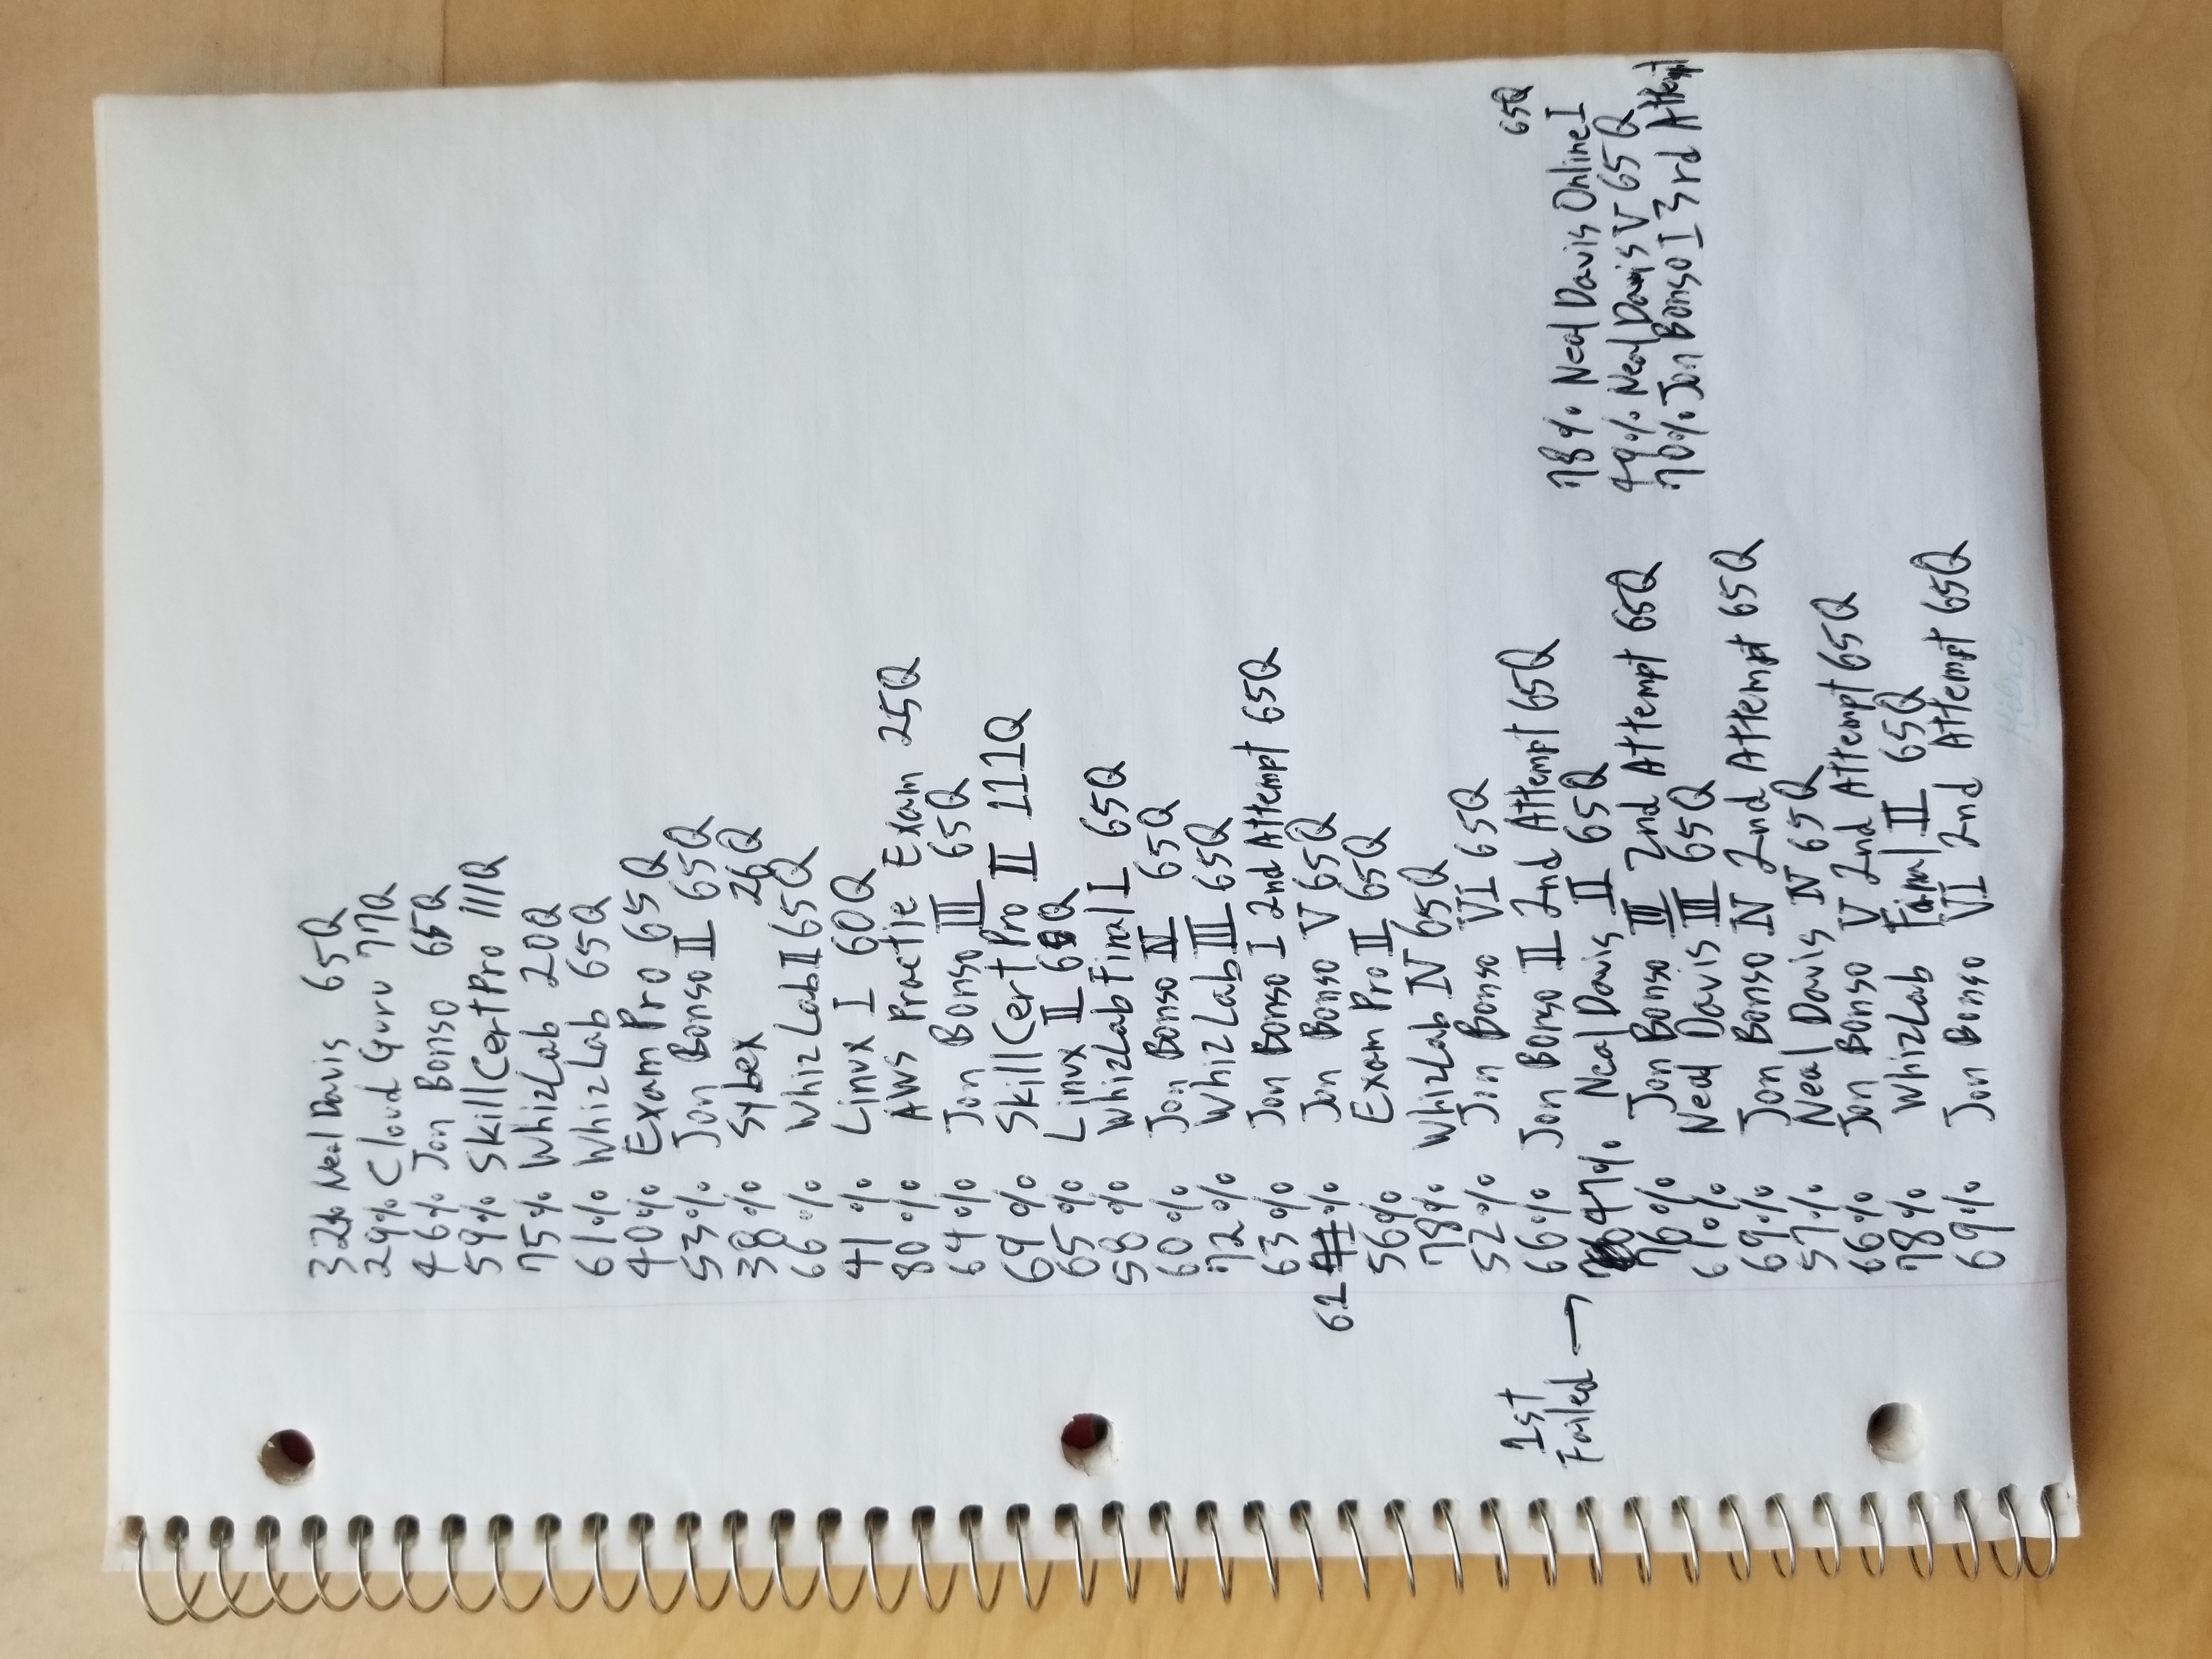 32% Neal Davis 65Q
29% Cloud Guru 77Q
46% Jon Bonso 65Q
59% SkillCertPro 111Q
75% WhizLab 20Q
61% WhizLab 65Q
40% Exam Pro 65Q
53% Jon Bonso II 65Q
38% Sybex 26Q
66% WhizLab II 65Q
41% Linux I 60Q
80% AWS Practie Exam 25Q
64% Jon Bonso III 65Q
69% SkillCertPro II 111Q
65% Linux II Q
58% WhizLab Final I 65Q
60% Jon Bonso IV 65Q
72% WhizLab III 65Q
63% Jon Bonso I 2nd Attempt 65Q
61 % Jon Bonso V 65Q
56% Exam Pro II 65Q
78% WhizLab IV 65Q
52% Jon Bonso VI 65Q
66% Jon Bonso II 2nd Attempt 65Q
1st
Failed → 47% Neal Davis II 65Q
76% Jon Bonso III 2nd Attempt 65Q
61% Neal Davis III 65Q
69% Jon Bonso IV 2nd Attempt 65Q
57% Neal Davis IV 65Q
66% Jon Bonso V 2nd Attempt 65Q
78% WhizLab Final II 65Q
69% Jon Bonso VI 2nd Attempt 65Q
65Q
78% Neal Davis Online I
49% Neal Davis V 65Q
70% Jon Bonso I 3rd Attempt